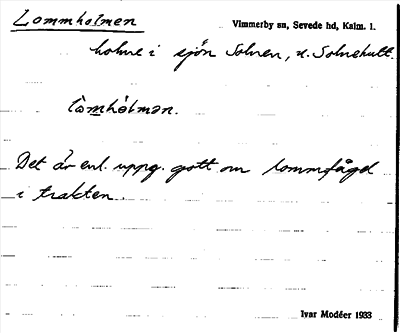 Lommholmen
Vimmerby sn, Sevede hd, Kalm. l.
holme i sjön Solnen, n. Solnehult.
lòmhólmən.
Det är enl. uppg. gott om lommfågel
i trakten.
Ivar Modéer 1933